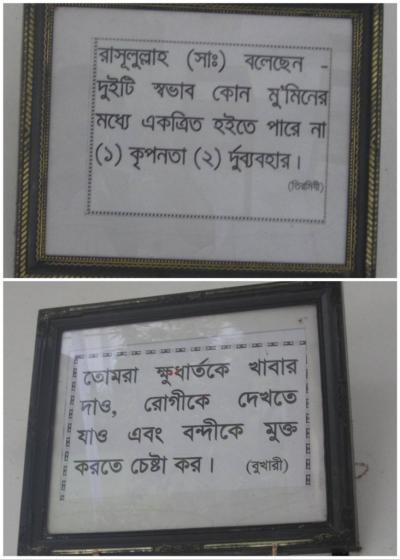 রাসূলুল্লাহ (সাঃ) বলেছেন -
দুইটি স্বভাব কোন মু'মিনের
মধ্যে একত্রিত হইতে পারে না
(১) কৃপনতা (২) র্দুব্যবহার।
(তিরমিযী)
তোমরা ক্ষুধার্তকে খাবার
দাও, রোগীকে দেখতে
যাও এবং বন্দীকে মুক্ত
করতে চেষ্টা কর। (বুখারী)